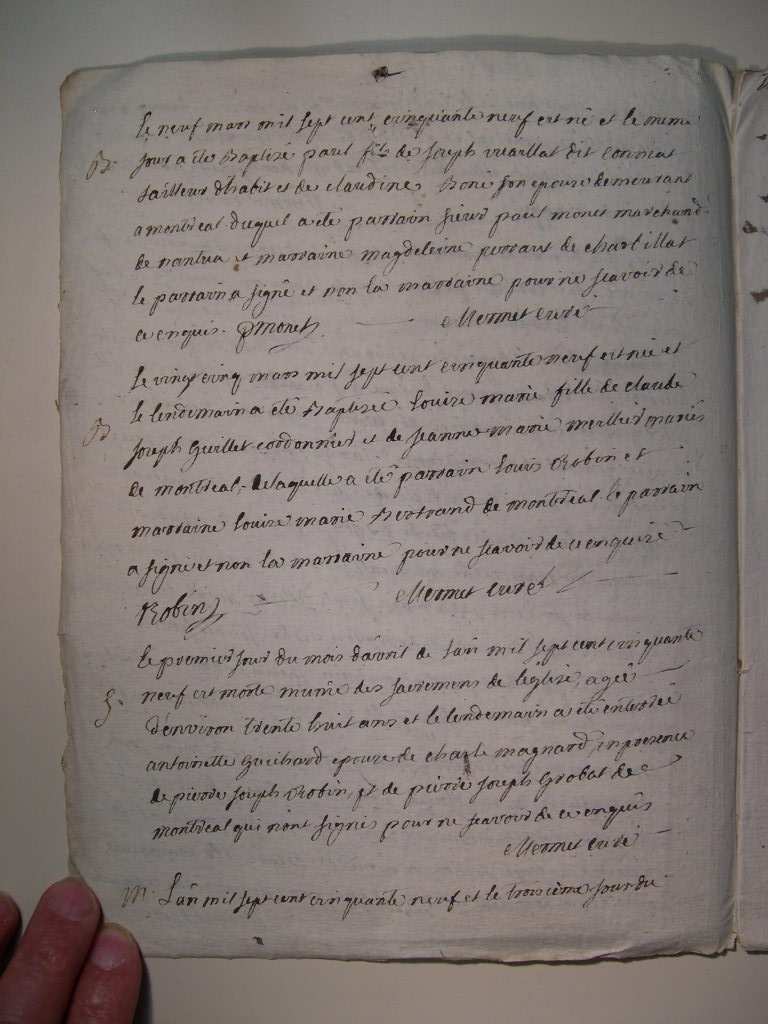 Le neuf mars mil sept cent cinquante neuf est né et le meme
B. jour a été Baptisé paul fils de joseph vuaillat dit
tailleur d'habit et de claudine Boné son epouse demeurant
a montreal duquel a été parrain sieur paul monet marchand
de nantua et marraine magdeleine perraut de charlillat
le parrain a signé et non la marraine pour ne scavoir de
ce enquis. pmonet Mermet curé
Le vingt cinq mars mil sept cent cinquante neuf est née et
B le lendemain a été Baptisée louise marie fille de claude
joseph Guillet cordonnier et de jeanne marie meillier mariés
de montreal, de laquelle a été parrain louis Robin et
marraine louise marie Bertrand de montreal le parrain
a signé et non la marraine pour ne scavoir de ce enquise
Robin Mermet curé
le premier jour du mois d'avril de l'an mil sept cent cinquante
S. neuf est morte munie des sacremens de l'eglise, agée
d'environ trente huit ans et le lendemain a été enterrée
antoinette Guichard epouse de charle magnard, en presence
de pierre joseph Robin, et de pierre joseph Grobat de
montreal qui n'ont signés pour ne scavoir de ce enquis
Mermet curé
M. L'an mil sept cent cinquante neuf et le troisième jour du